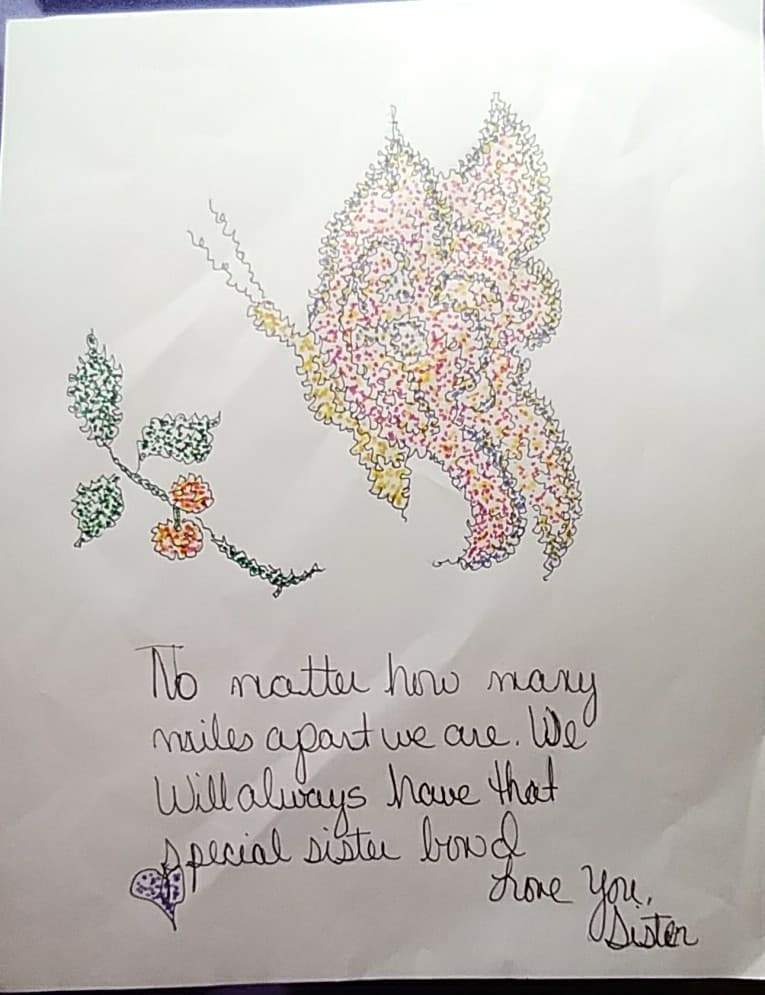 No matter how many
miles apart we are. We
Will always have that
special sister bond
Love You,
Sister